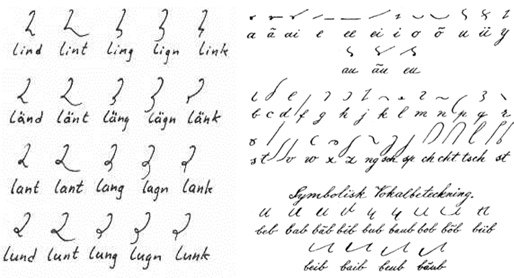 lind lint ling lign link
länd länt läng lägn länk
lant lant lang lagn lank
lund lung lugn lunk
a ä ai e ee ei i o ö u ü y
au äu eu
b c d f g h j k l m n p q r
s t v w x z ng sch sp ch cht tsch st
Symbolisk Vokalbeteckning.
beb bab bäb bib bub baub bob böb büb
beib baib beub bäub